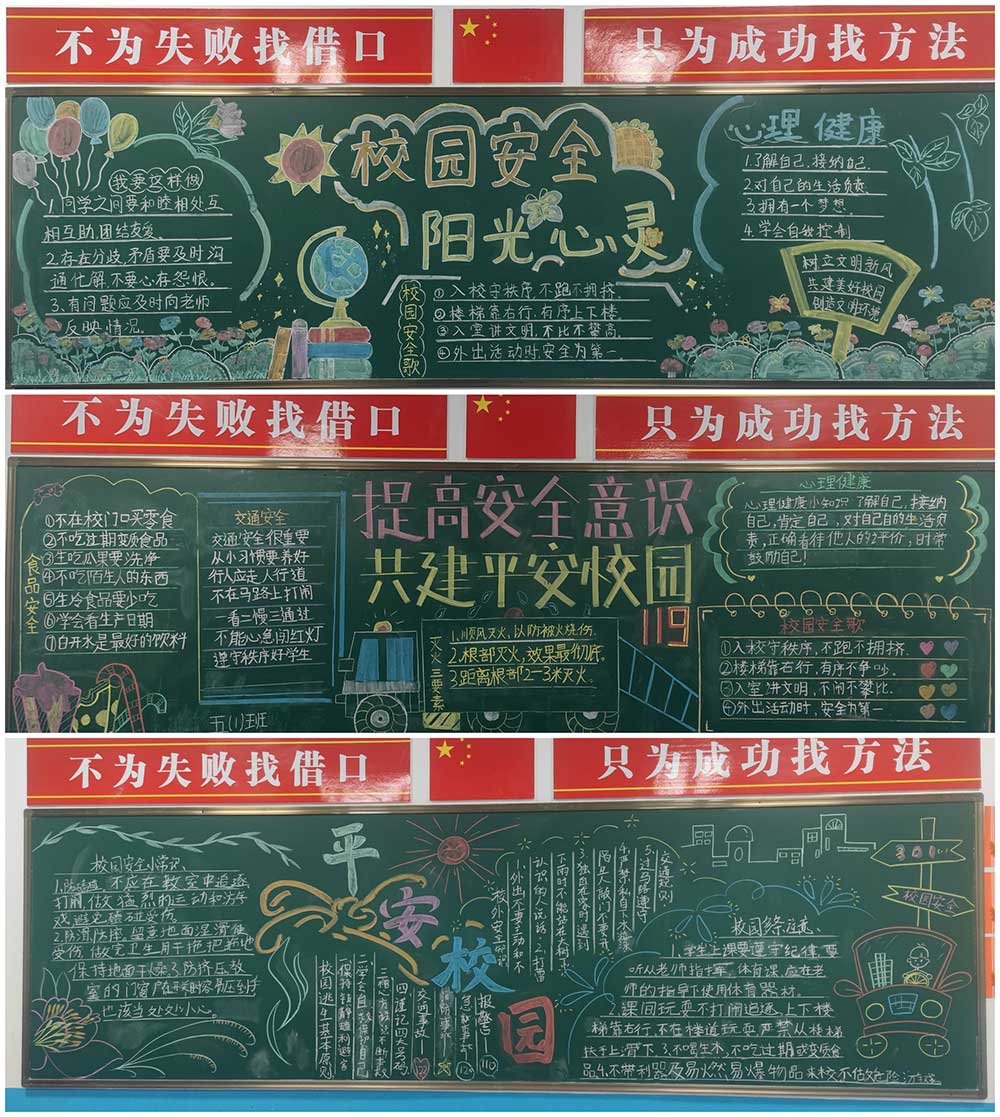 不为失败找借口
只为成功找方法
校园安全
阳光心灵
我要这样做
1.同学之间要和睦相处互
相互助,团结友爱。
2.存在分歧矛盾要及时沟
通忙解,不要心存怨恨。
3.有问题应及时向老师
反映情况。
校园安全歌
①入校守秩序,不跑不拥挤.
②楼梯靠右行,有序上下楼。
③入室讲文明,不比不攀高.
④外出活动时,安全为第一.
心理健康
1.了解自己,接纳自己.
2.对自己的生活负责.
3.拥有一个梦想.
4.学会自我控制
树立文明新风
共建美好校园
创造文明环境
不为失败找借口
只为成功找方法
提高安全意识
共建平安校园
食品安全
①不在校门口买零食
②不吃过期变质食品
③生吃瓜果要洗净
④不吃陌生人的东西
⑤生冷食品要少吃
⑥学会看生产日期
⑦白开水是最好的饮料
交通安全
交通安全很重要
从小习惯要养好
行人应走人行道
不在马路上打闹
一看二慢三通过
不能心急闯红灯
遵守秩序好学生
五(1)班
灭火三要素
1.顺风灭火,以防被火烧伤.
2.根部灭火,效果最彻底。
3.距离根部2-3米灭火。
119
心理健康
心理健康小知识 了解自己,接纳
自己,肯定自己,对自己的生活负
责,正确看待他人的评价,时常
鼓励自己!
校园安全歌
①入校守秩序,不跑不拥挤.
②楼梯靠右行,有序不争吵.
③入室讲文明,不闹不攀比.
④外出活动时,安全为第一
不为失败找借口
只为成功找方法
平安校园
校园安全小常识
不应在教室中追逐
打闹,做猛烈的运动和游
戏避免磕碰受伤
2.防滑,防摔,留意地面湿滑使
受伤,做完卫生用干拖把拖地
保持地面干燥3.防挤压教
室的门窗户在开关时容易压到手
也该当处处小心。
校园逃生基本原则
一保持镇静趋利避害
二学会自救保护自己
四谨记四大号码
报警电—110
急救
120
交通事故
122
校外安全知识
1.外出不要主动和不
认识的人说话。2.打雷
下雨时不能站在大树下
3.独自在家时遇到
陌生人敲门不要开
4.严禁私自下水游泳
5.过马路遵守
交通规则
校园
注意
1.学生上课要遵守纪律,要
听从老师指挥,体育课应在老
师的指导下使用体育器材.
2.课间玩耍不打闹追逐,上下楼
梯靠右行,不在楼道玩耍严禁从楼梯
扶手上滑下.3.不喝生水,不吃过期或变质食
品4.不带利器及易燃易爆物品来校不做危险游戏
301
校园安全